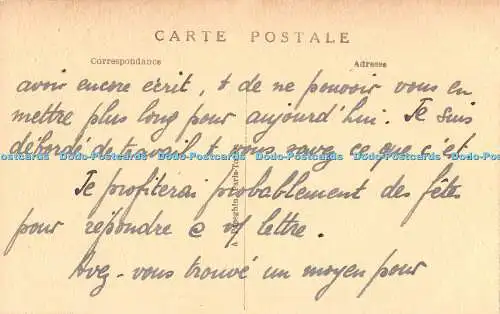 CARTE POSTALE
Correspondance
Adresse
avoir encore écrit, & de ne pouvoir vous en
mettre plus long pour aujourd'hui. Je suis
débordé de travail & vous savez ce que c'est.
Dodo-Postcards Dodo-Postcards Dodo-Postcards Dodo-Postcards
Je profiterai probablement des fêtes
pour répondre @ v/ lettre.
Avez-vous trouvé un moyen pour